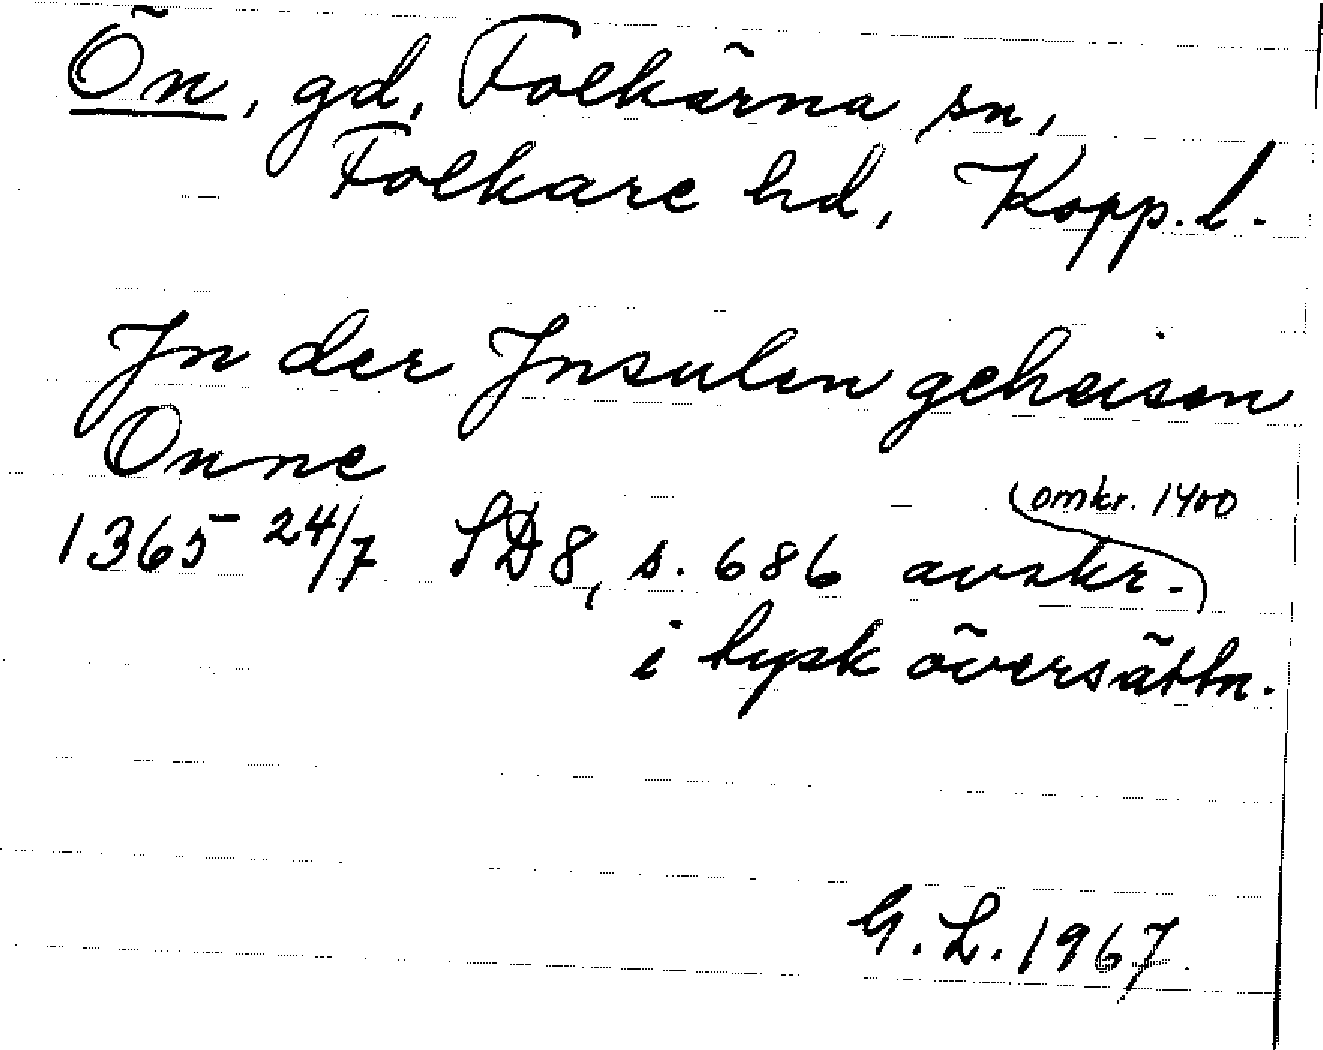 Ön, gd, Folkärna sn,
Folkare hd, Kopp. l.
In der Insulen geheisen
Onne
1365 24/7 SD8, s. 686 avskr. (omkr. 1400)
i tysk översättn.
G. L. 1967